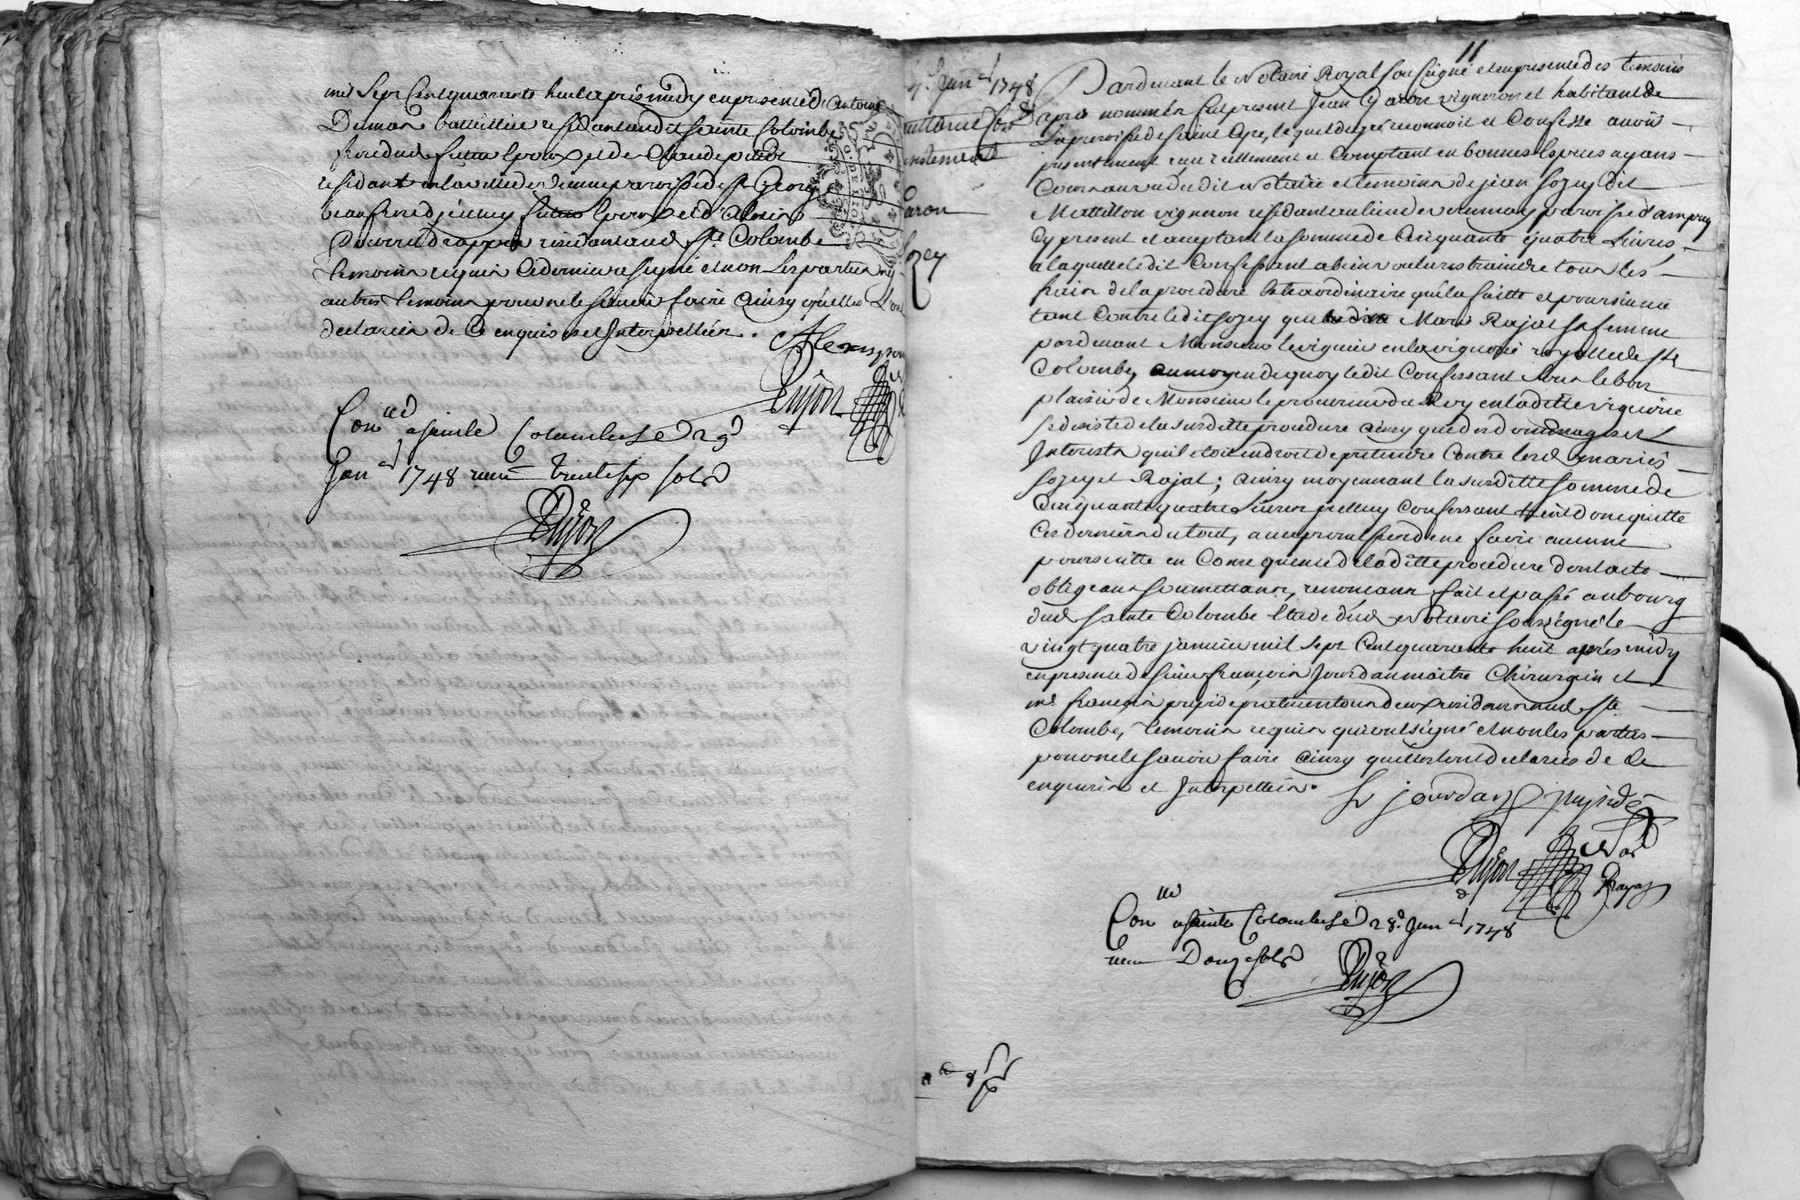 mil sept cent quarante huit après midy en presence d'antoine
Dumas battellier residant audit sainte Colombe
du futur Epoux et de Claude
residant en la ville de vienne parroisse de st George
beaufrere d' futur Epoux et d'
residant aud ste Colombe
temoins requis ce dernier a signé et non les parties ny
autres temoins pour ne le sçavoir faire ainsy qu'elles l'ont
declaré de ce enquis et Interpellés.
Dujon
Con.lé a sainte Colombe le 29
Janer 1748 reçu trente six sols
Dujon
11
Janer 1748
Pardevant le Notaire Royal soussigné et en presence des temoins
apres nommés fut present Jean Caron vigneron et habitant de
la parroisse de saint Cyre, lequel de gré reconnoit et Confesse avoir
presentement reçu reellement et Comptant en bonnes Especes ayans
Cours au vu dudit Notaire et temoins de jean sozey dit
Mattillon vigneron residant au lieu de verenay parroisse d'ampuy
Cy present et acceptant la somme de Cinquante quatre Livres
a laquelle ledit Confessant a bien voulu restraindre tous les
frais de la procedure Extraordinaire qu'il a faitte et poursuivie
tant Contre ledit sozey que Marie Rajat sa femme
pardevant Monsieur le viguier en la viguerie royalle de ste
Colombe, au moyen de quoy ledit Confessant sous le bon
plaisir de Monsieur le procureur du Roy en laditte viguerie
se desiste de la susditte procedure ainsy que des dommages et
Interests qu'il etoit en droit de pretendre Contre lesd mariés
sozey et Rajat; ainsy moyennant la susditte somme de
Cinquante quatre Livres Confessant tient donc quitte
Ces derniers du tout, avec promesse de ne faire aucune
poursuitte en Consequence de laditte procedure dont acte
obligeans soumettans, renonceans, fait et passé au bourg
dud sainte Colombe Etude dud Notaire soussigné le
vingt quatre janvier mil sept cent quarante huit après midy
en presence de sieur françois Jourdan maitre Chirurgien et
françois
Colombe, temoins requis qui ont signé et non les parties
pour ne le sçavoir faire ainsy qu'elles l'ont declaré de ce
enquises et Interpellées.
fr jourdan
Dujon
Con.lé a sainte Colombe le 28 Janer 1748
reçu Douze sols
Dujon